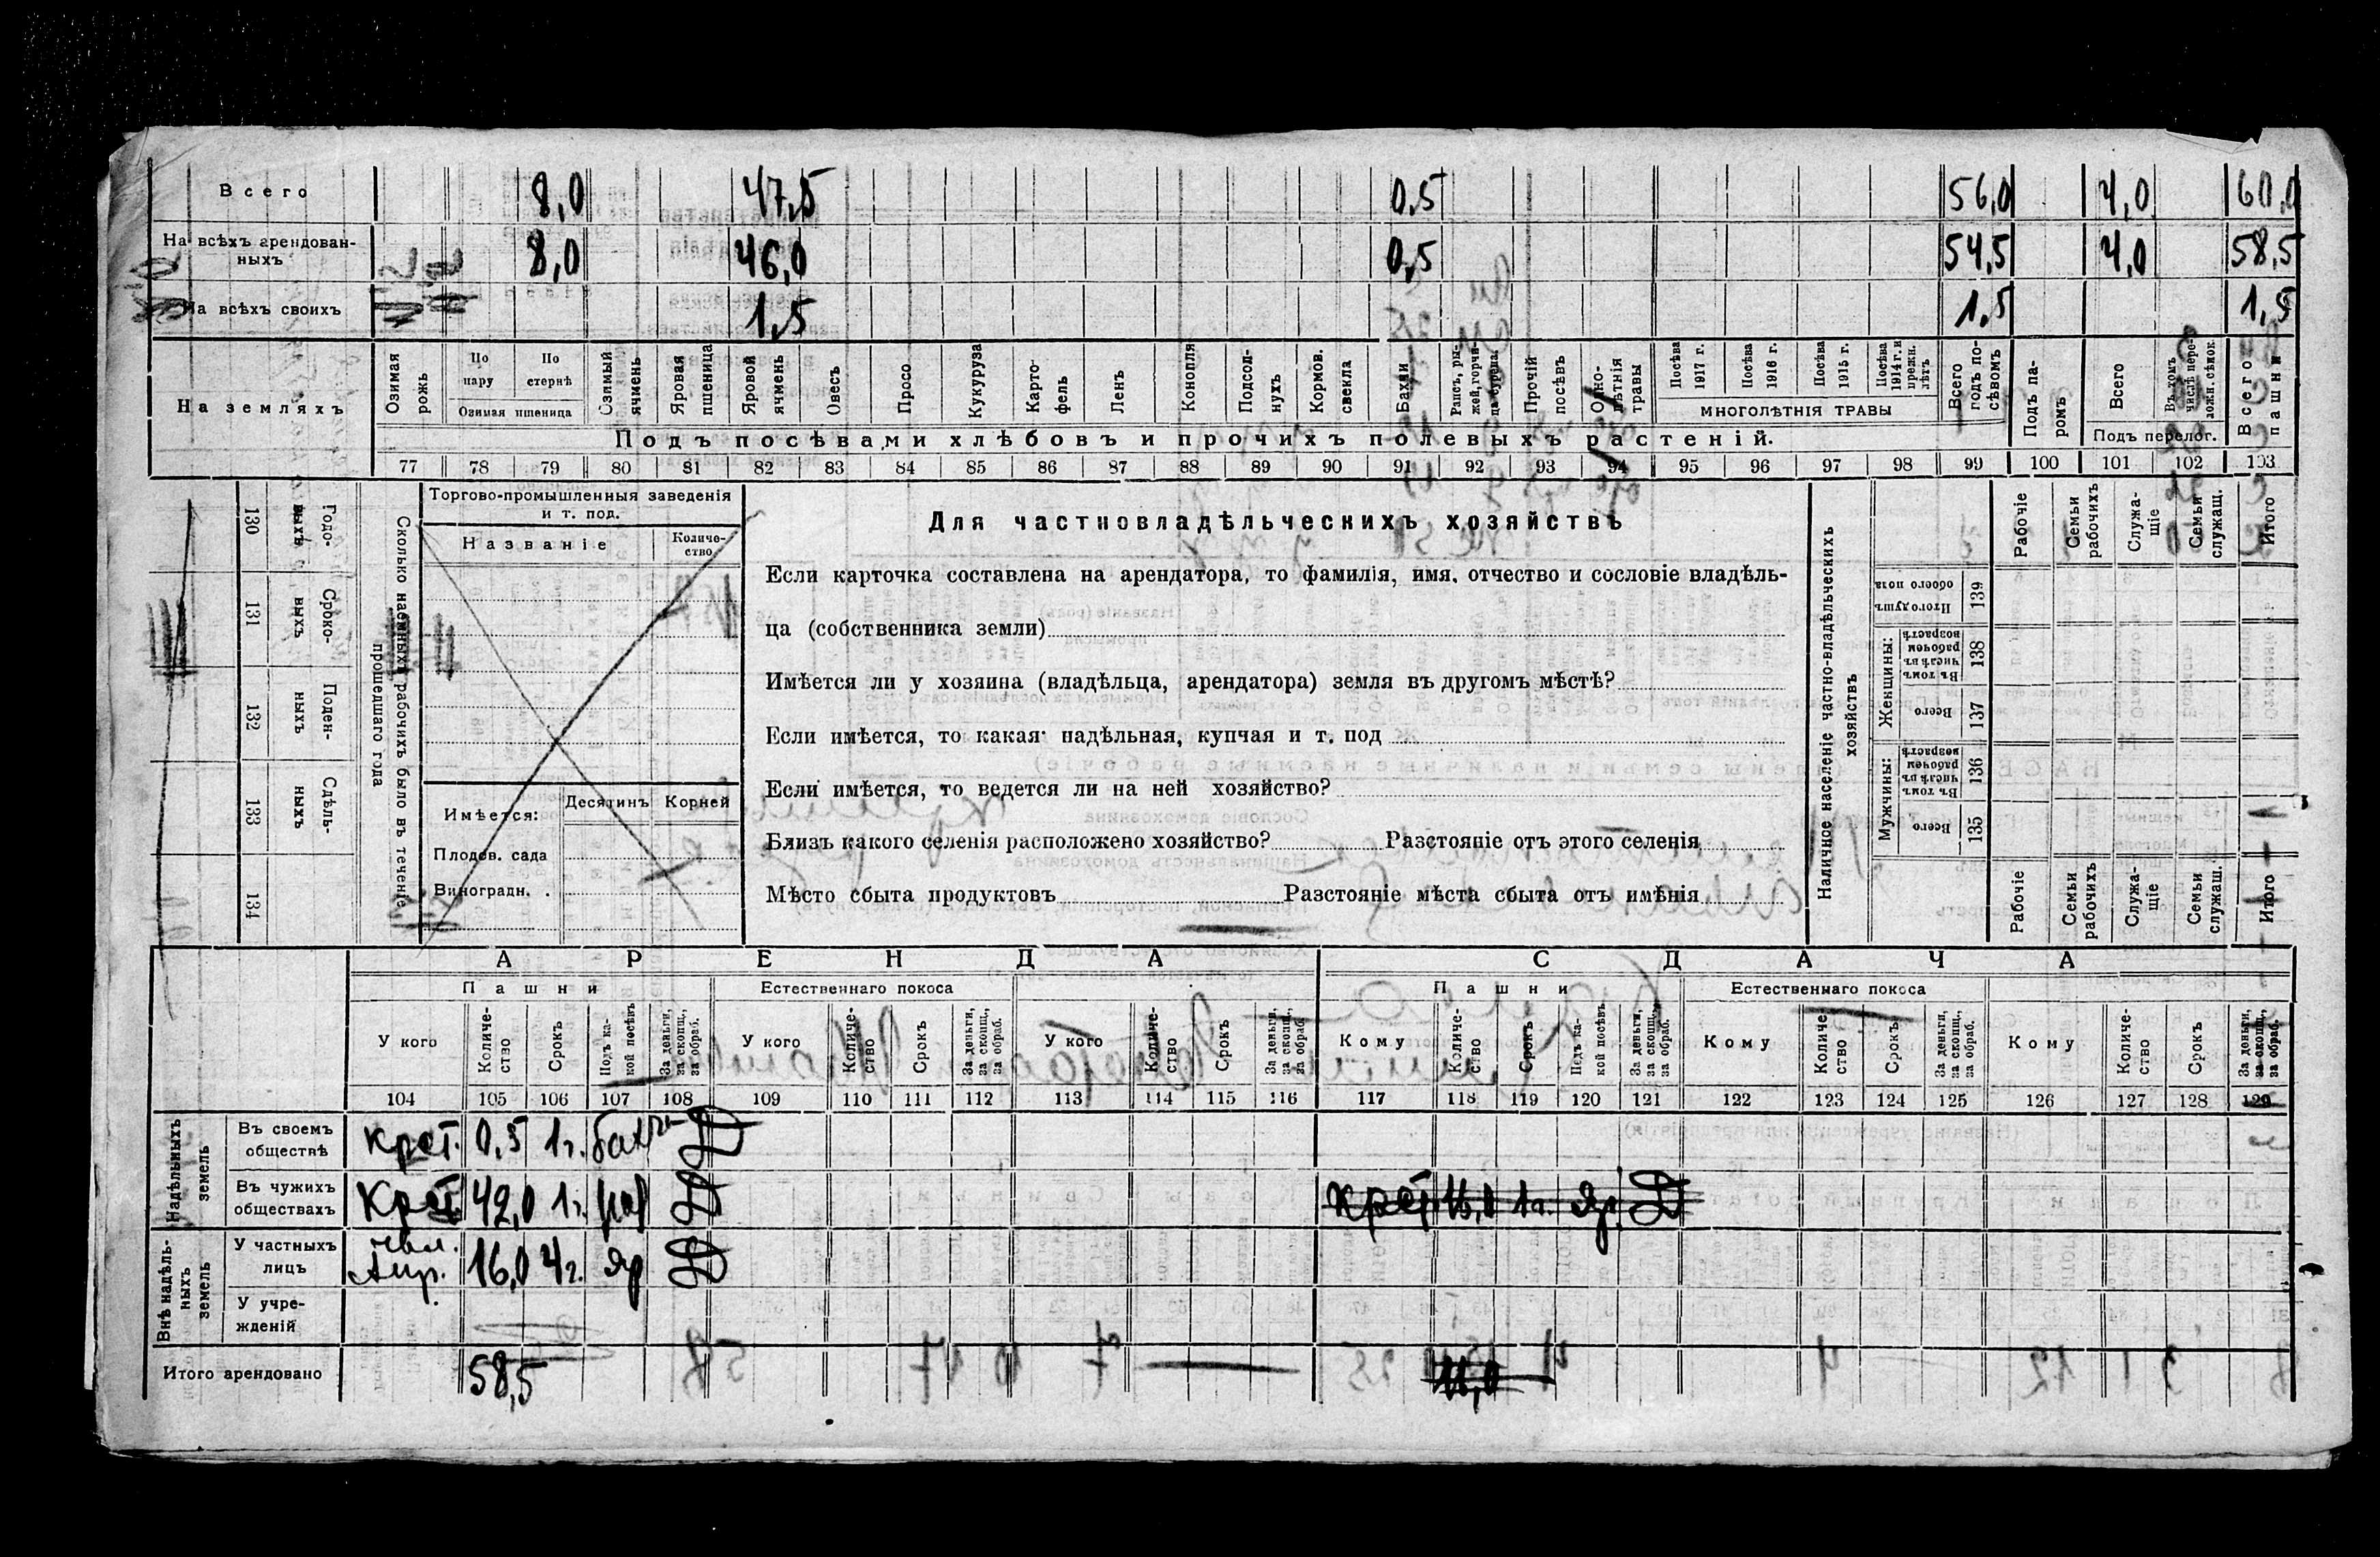 Всего 8,0 47,5 0,5 56,0 4,0 60,0
На всѣхъ арендован-
ныхъ 8,0 46,0 0,5 54,5 4,0 58,5
На всѣхъ своихъ 1,5 1,5 1,5
На земляхъ
Озимая рожь
По пару
По стернѣ
Озимая пшеница
Озимый ячмень
Яровая пшеница
Яровой ячмень
Овесъ
Просо
Кукуруза
Карто-
фель
Ленъ
Конопля
Подсол-
нухъ
Кормов.
свекла
Бахчи
Прочій
посѣвъ
Одно-
лѣтнія
травы
Посѣва
1917 г.
Посѣва
1916 г.
Посѣва
1915 г.
Посѣва
1914 г. и
прежн.
лѣтъ
МНОГОЛѢТНІЯ ТРАВЫ
Всего
подъ по-
сѣвомъ
Подъ па-
ромъ
Всего
Въ томъ
числѣ пере-
ложн. сѣнок.
Подъ перелог.
Всего
пашни
Подъ посѣвами хлѣбовъ и прочихъ полевыхъ растеній.
77 78 79 80 81 82 83 84 85 86 87 88 89 90 91 92 93 94 95 96 97 98 99 100 101 102 103
130 Годо-
выхъ
131 Сроко-
выхъ
132 Поден-
ныхъ
133 Сдѣль-
ныхъ
134
Сколько наемныхъ рабочихъ было въ теченіе
прошедшаго года
Торгово-промышленныя заведенія
и т. под.
Названіе
Количе-
ство
Имѣется:
Десятинъ Корней
Плодов. сада
Виноградн. .
Для частновладѣльческихъ хозяйствъ
Если карточка составлена на арендатора, то фамилія, имя, отчество и сословіе владѣль-
ца (собственника земли)
Имѣется ли у хозяина (владѣльца, арендатора) земля въ другомъ мѣстѣ?
Если имѣется, то какая: надѣльная, купчая и т. под
Если имѣется, то ведется ли на ней хозяйство?
Близъ какого селенія расположено хозяйство? Разстояніе отъ этого селенія
Мѣсто сбыта продуктовъ Разстояніе мѣста сбыта отъ имѣнія
Наличное населеніе частно-владѣльческихъ
хозяйствъ
Рабочіе
Семьи
рабочихъ
Служа-
щіе
Семьи
служащ.
Итого
Итого душъ
обоего пола 139
Женщины:
Въ томъ
числѣ въ
рабочем
возрастѣ 138
Всего 137
Мужчины:
Въ томъ
числѣ въ
рабочем
возрастѣ 136
Всего 135
Рабочіе
Семьи
рабочихъ
Служа-
щіе
Семьи
служащ.
Итого
АРЕНДА
СДАЧА
Пашни
Естественнаго покоса
Пашни
Естественнаго покоса
У кого
Количе-
ство
Срокъ
Подъ ка-
кой посѣвъ
За деньги,
за скопщ.,
за обраб.
У кого
Количе-
ство
Срокъ
За деньги,
за скопщ.,
за обраб.
У кого
Количе-
ство
Срокъ
За деньги,
за скопщ.,
за обраб.
Кому
Количе-
ство
Срокъ
Подъ ка-
кой посѣвъ
За деньги,
за скопщ.,
за обраб.
Кому
Количе-
ство
Срокъ
За деньги,
за скопщ.,
за обраб.
Кому
Количе-
ство
Срокъ
За деньги,
за скопщ.,
за обраб.
104 105 106 107 108 109 110 111 112 113 114 115 116 117 118 119 120 121 122 123 124 125 126 127 128 129
Надѣльныхъ
земель
Въ своемъ
обществѣ крест. 0,5 1г. Д
Въ чужихъ
обществахъ Крест. 42,0 1г. Д 1г. яр. Д
Внѣ надѣль-
ныхъ
земель
У частныхъ
лицъ 16,0 4г. яр Д
У учре-
жденій
Итого арендовано 58,5